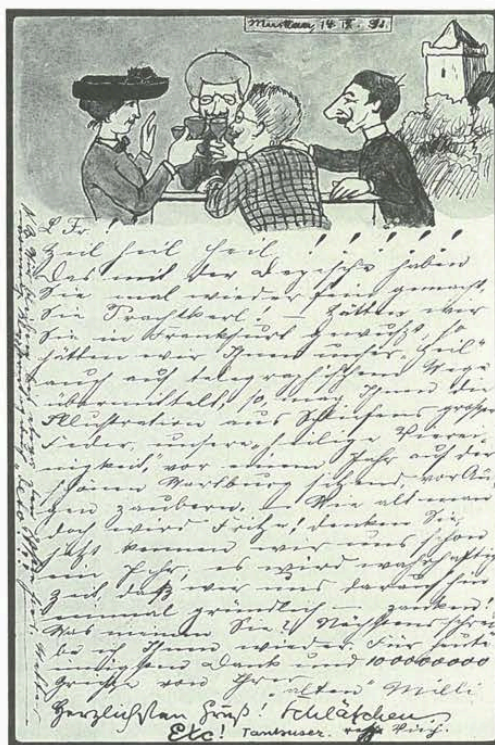 L. Fr.!
Heil heil heil !!!!!!
Das mit der Depesche haben
Sie mal wieder fein gemacht,
Sie Prachtkerl! — Hätten wir
Sie in Frankfurt gewußt, so
hätten wir Ihnen unser „Heil“
auch auf telegraphischem Wege
übermittelt, so mag Ihnen die
Illustration aus großer
Feder, unsere „heilige Vierei-
nigkeit“ vor einem Jahr auf der
schönen Wartburg sitzend, vor Au-
gen zaubern. — Wie alt man
doch wird Fritze! denken Sie,
jetzt kennen wir uns schon
ein Jahr, es wird wahrhaftig
Zeit, daß wir uns darauf hin
einmal gründlich — zanken!
Was meinen Sie? Nächstens schrei-
be ich Ihnen wieder. Für heute
innigsten Dank und 1000000000
Grüße von Ihrer
„alten“ Milli
Herzlichsten Gruß! Schläfchen
Etc! Tanhuser.